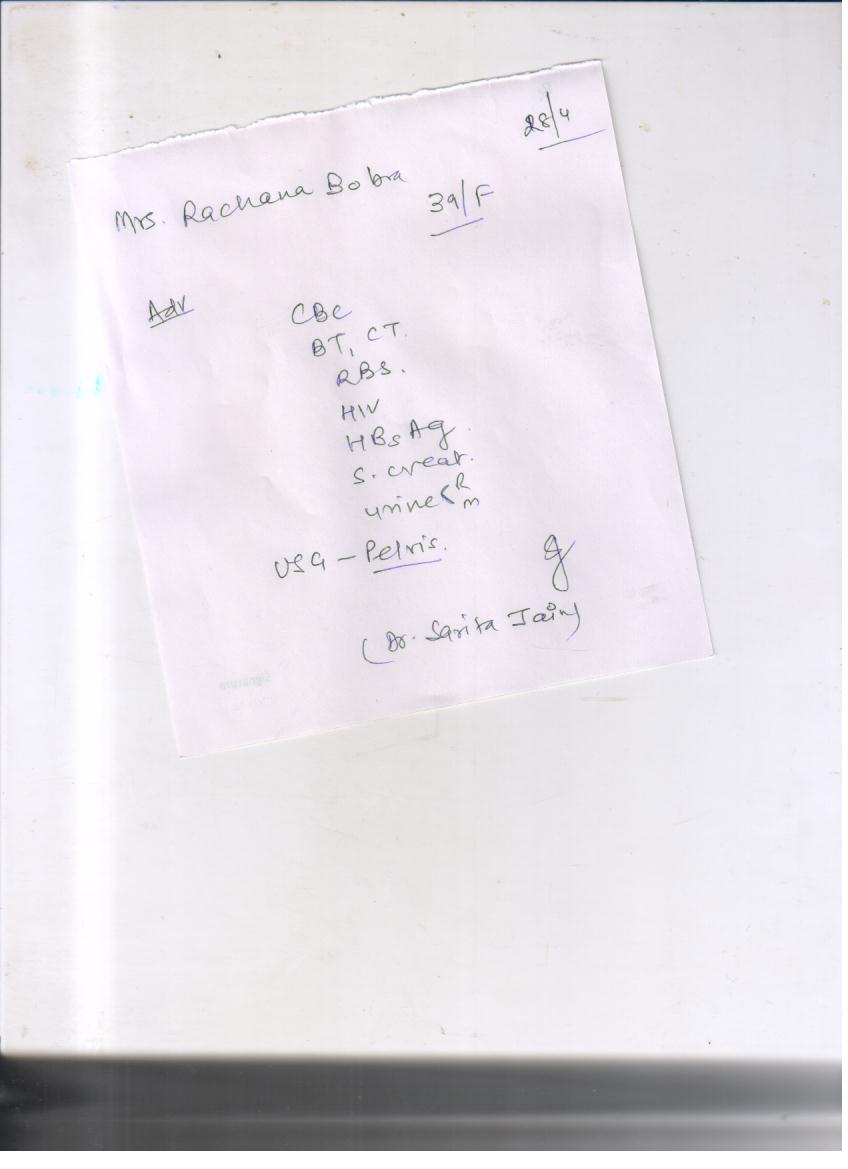 28/4
Mrs. Rachana Bobra
39/F
Adv
CBC
BT, CT.
RBS.
HIV
HBsAg.
S. creat.
urine < R
m
USG - Pelvis.
(Dr. Sarita Jain)
Signature